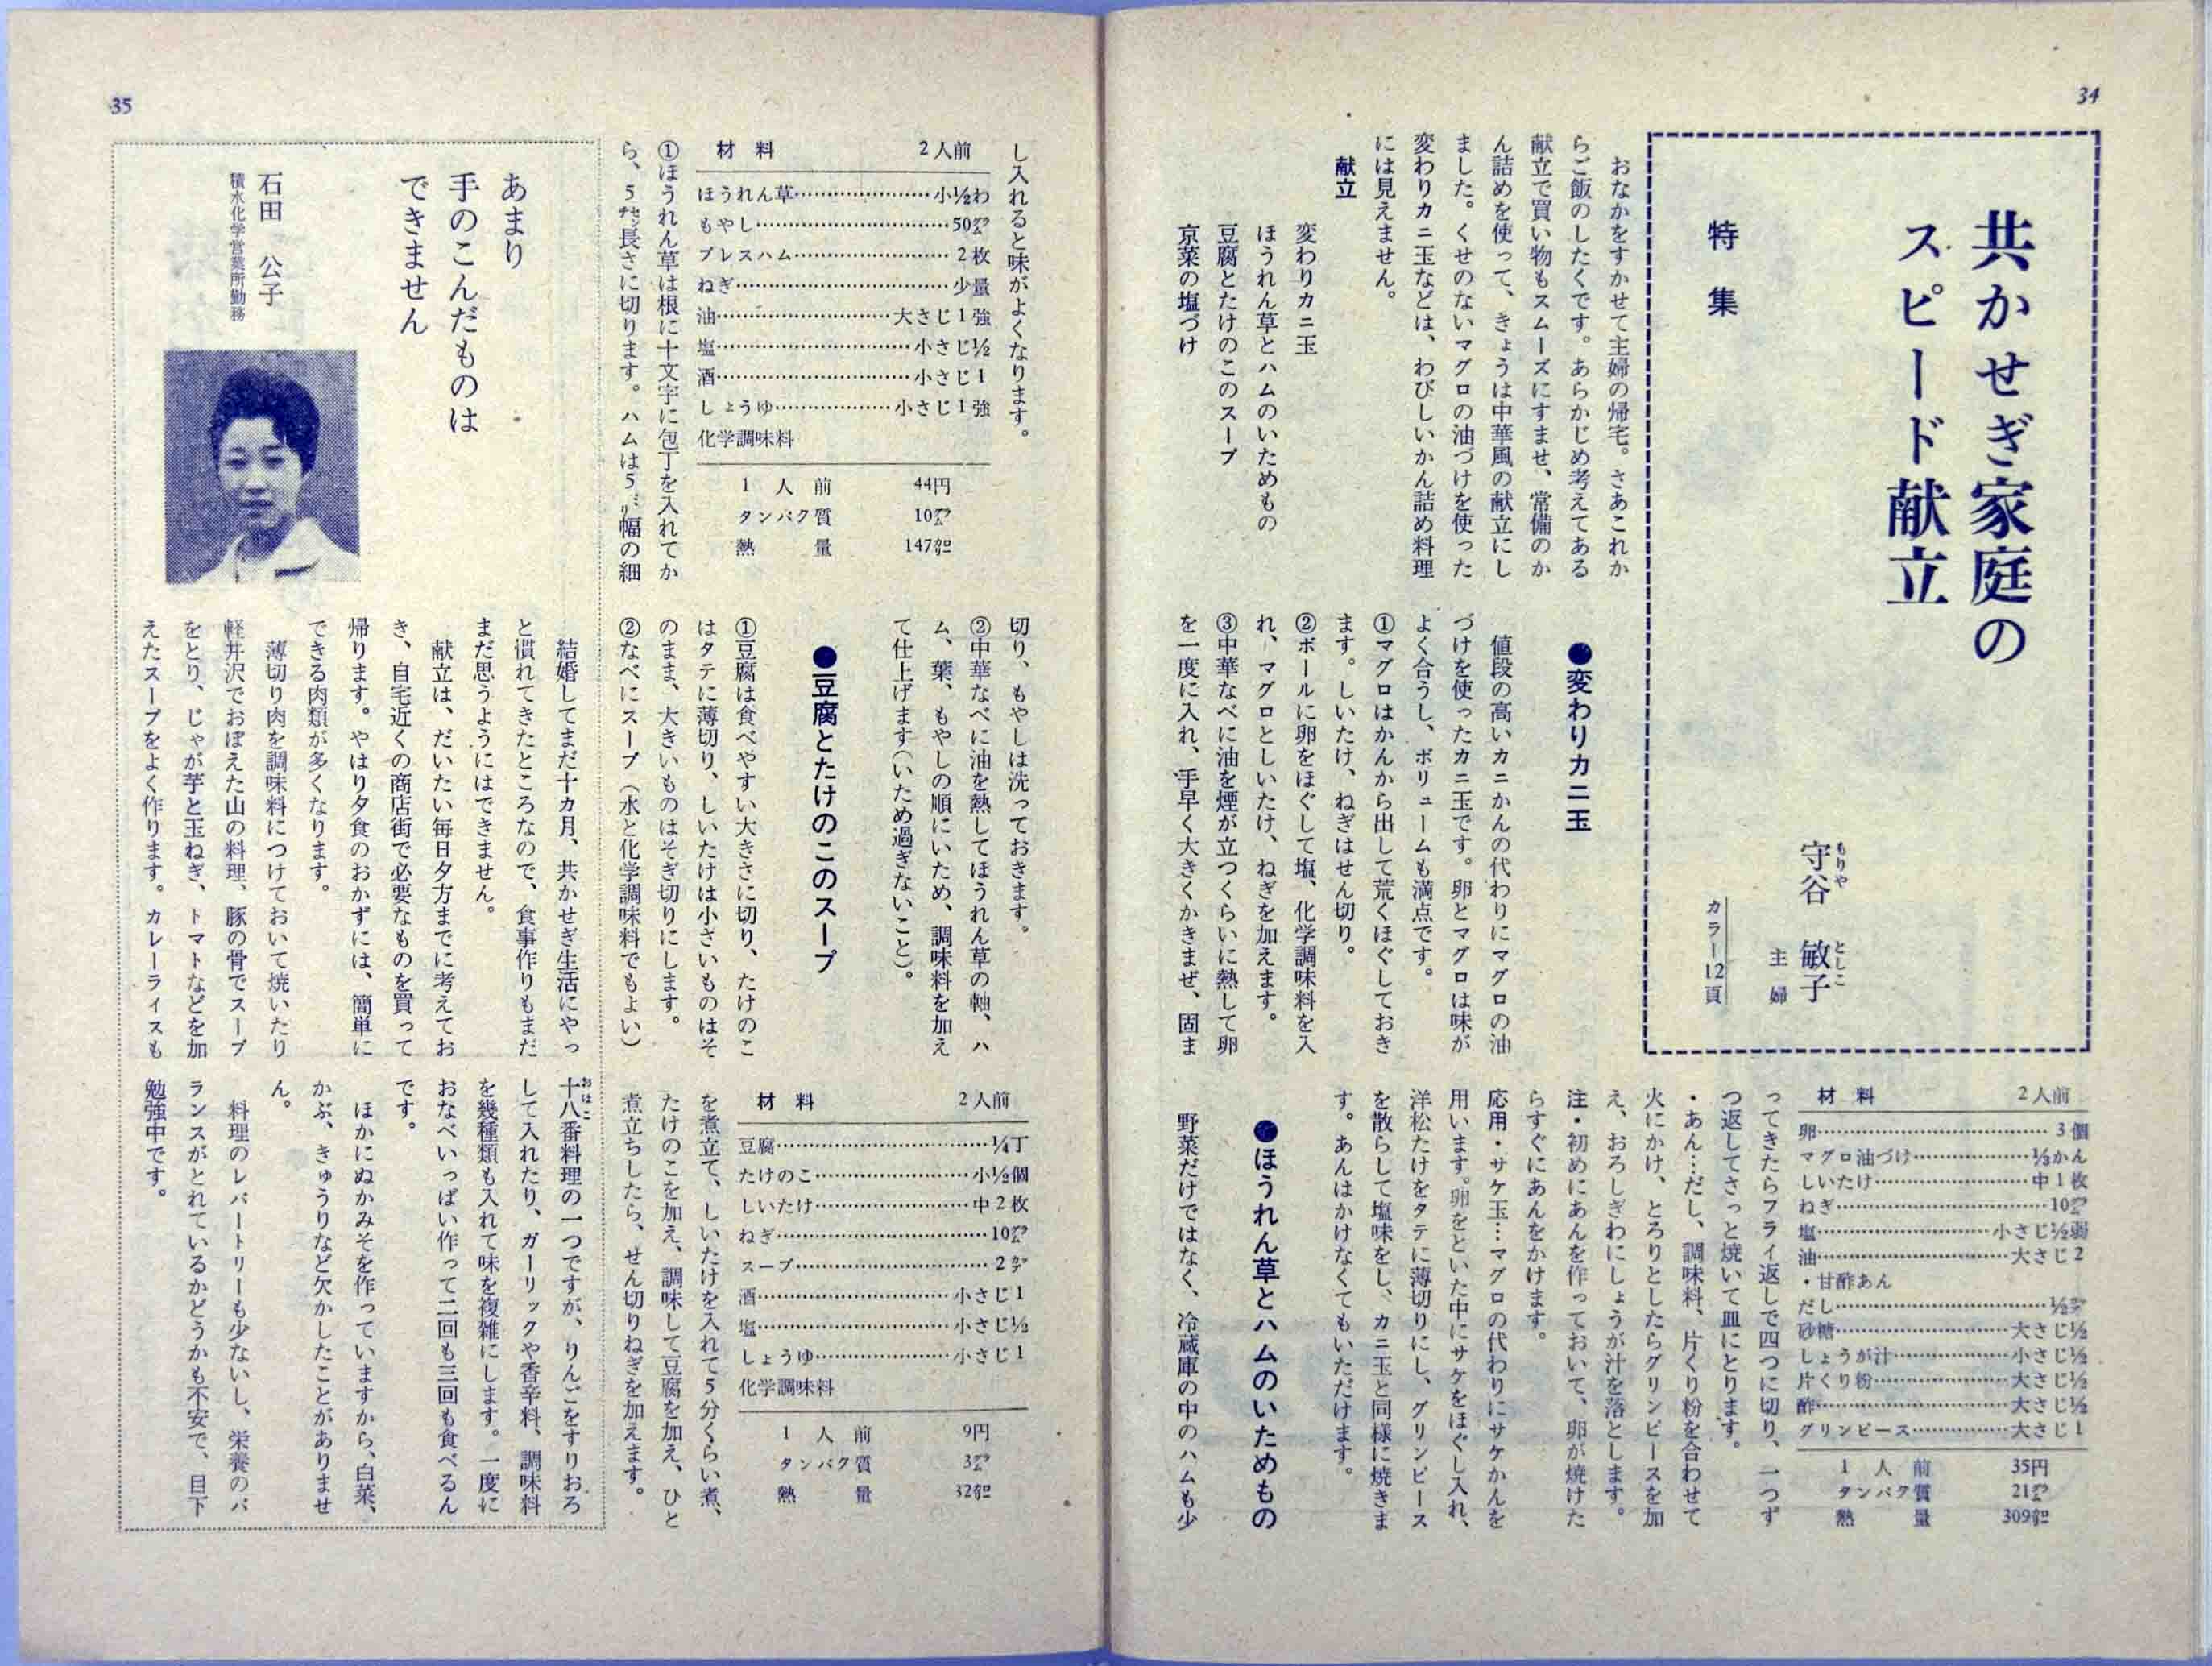 34
特集
共かせぎ家庭の
スピード献立
守谷 敏子
もりや としこ
主婦
カラー12頁
おなかをすかせて主婦の帰宅。さあこれか
らご飯のしたくです。あらかじめ考えてある
献立で買い物もスムーズにすませ、常備のか
ん詰めを使って、きょうは中華風の献立にし
ました。くせのないマグロの油づけを使った
変わりカニ玉などは、わびしいかん詰め料理
には見えません。
献立
変わりカニ玉
ほうれん草とハムのいためもの
豆腐とたけのこのスープ
京菜の塩づけ
●変わりカニ玉
値段の高いカニかんの代わりにマグロの油
づけを使ったカニ玉です。卵とマグロは味が
よく合うし、ボリュームも満点です。
①マグロはかんから出して荒くほぐしておき
ます。しいたけ、ねぎはせん切り。
②ボールに卵をほぐして塩、化学調味料を入
れ、マグロとしいたけ、ねぎを加えます。
③中華なべに油を煙が立つくらいに熱して卵
を一度に入れ、手早く大きくかきまぜ、固ま
材料 2人前
卵……3個
マグロ油づけ……⅓かん
しいたけ……中1枚
ねぎ……10㌘
塩……小さじ½弱
油……大さじ2
・甘酢あん
だし……½㌘
砂糖……大さじ½
しょうが汁……小さじ½
片くり粉……大さじ½
酢……大さじ½
グリンピース……大さじ1
1人前 35円
タンパク質 21㌘
熱量 309㌍
ってきたらフライ返しで四つに切り、一つず
つ返してさっと焼いて皿にとります。
・あん…だし、調味料、片くり粉を合わせて
火にかけ、とろりとしたらグリンピースを加
え、おろしぎわにしょうが汁を落とします。
注・初めにあんを作っておいて、卵が焼けた
らすぐにあんをかけます。
応用・サケ玉…マグロの代わりにサケかんを
用います。卵をといた中にサケをほぐし入れ、
洋松たけをタテに薄切りにし、グリンピース
を散らして塩味をし、カニ玉と同様に焼きま
す。あんはかけなくてもいただけます。
●ほうれん草とハムのいためもの
野菜だけではなく、冷蔵庫の中のハムも少
35
し入れると味がよくなります。
材料 2人前
ほうれん草……小½わ
もやし……50㌘
プレスハム……2枚
ねぎ……少量
油……大さじ1強
塩……小さじ½
酒……小さじ1
しょうゆ……小さじ1強
化学調味料
1人前 44円
タンパク質 10㌘
熱量 147㌍
①ほうれん草は根に十文字に包丁を入れてか
ら、5㌢長さに切ります。ハムは5㍉幅の細
切り、もやしは洗っておきます。
②中華なべに油を熱してほうれん草の軸、ハ
ム、葉、もやしの順にいため、調味料を加え
て仕上げます(いため過ぎないこと)。
●豆腐とたけのこのスープ
①豆腐は食べやすい大きさに切り、たけのこ
はタテに薄切り、しいたけは小さいものはそ
のまま、大きいものはそぎ切りにします。
②なべにスープ(水と化学調味料でもよい)
材料 2人前
豆腐……¼丁
たけのこ……小½個
しいたけ……中2枚
ねぎ……10㌘
スープ……2㌘
酒……小さじ1
塩……小さじ½
しょうゆ……小さじ1
化学調味料
1人前 9円
タンパク質 3㌘
熱量 32㌍
を煮立て、しいたけを入れて5分くらい煮、
たけのこを加え、調味して豆腐を加え、ひと
煮立ちしたら、せん切りねぎを加えます。
あまり
手のこんだものは
できません
石田 公子
積水化学営業所勤務
結婚してまだ十カ月、共かせぎ生活にやっ
と慣れてきたところなので、食事作りもまだ
まだ思うようにはできません。
献立は、だいたい毎日夕方までに考えてお
き、自宅近くの商店街で必要なものを買って
帰ります。やはり夕食のおかずには、簡単に
できる肉類が多くなります。
薄切り肉を調味料につけておいて焼いたり
軽井沢でおぼえた山の料理、豚の骨でスープ
をとり、じゃが芋と玉ねぎ、トマトなどを加
えたスープをよく作ります。カレーライスも
十八番料理の一つですが、りんごをすりおろ
おはこ
して入れたり、ガーリックや香辛料、調味料
を幾種類も入れて味を複雑にします。一度に
おなべいっぱい作って二回も三回も食べるん
です。
ほかにぬかみそを作っていますから、白菜、
かぶ、きゅうりなど欠かしたことがありませ
ん。
料理のレパートリーも少ないし、栄養のバ
ランスがとれているかどうかも不安で、目下
勉強中です。